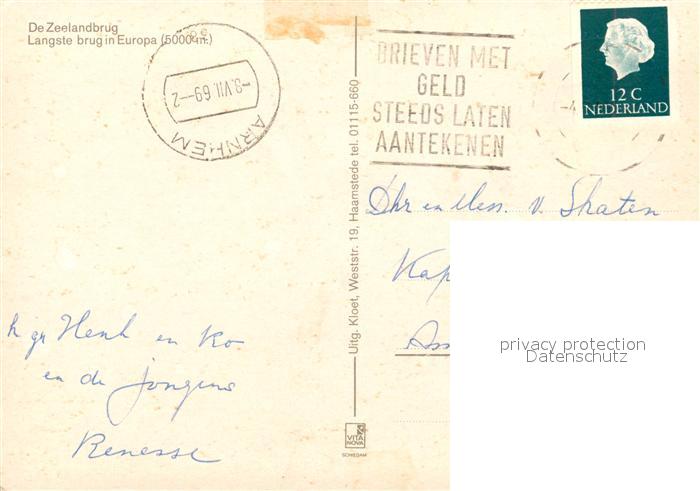 De Zeelandbrug
Langste brug in Europa (5000 m.)
-3.VII.69--2
ARNHEM
BRIEVEN MET
GELD
STEEDS LATEN
AANTEKENEN
12 C
NEDERLAND
Uitg. Kloet, Weststr. 19, Haamstede tel. 01115-660
Dhr en Mevr. v. Straten
Kap
Ass
h gr Henk en Ko
en de jongens
Renesse
VITA
NOVA
SCHIEDAM
privacy protection
Datenschutz